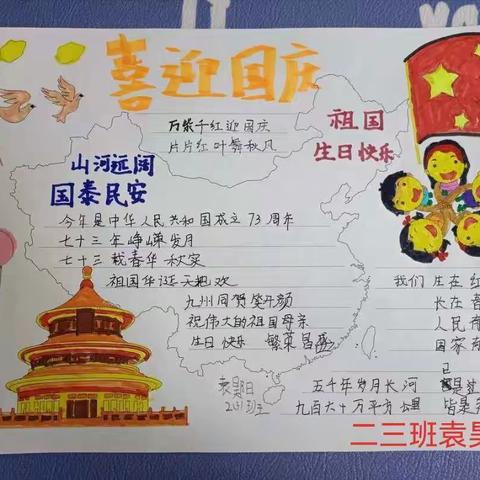 喜迎国庆
万紫千红迎国庆
片片红叶舞秋风
祖国
生日快乐
山河远阔
国泰民安
今年是中华人民共和国成立73周年
七十三年峥嵘岁月
七十三载春华秋实
祖国华诞天地欢
九州同贺笑开颜
祝伟大的祖国母亲
生日快乐 繁荣昌盛
我们生在红
长在春
人民有
国家有
五千年岁月长河 已是过
九百六十万平方公里 皆是
二三班袁昊